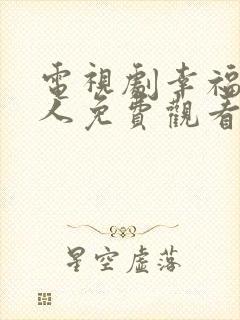 電視劇幸福
人免費觀看
星空虛落